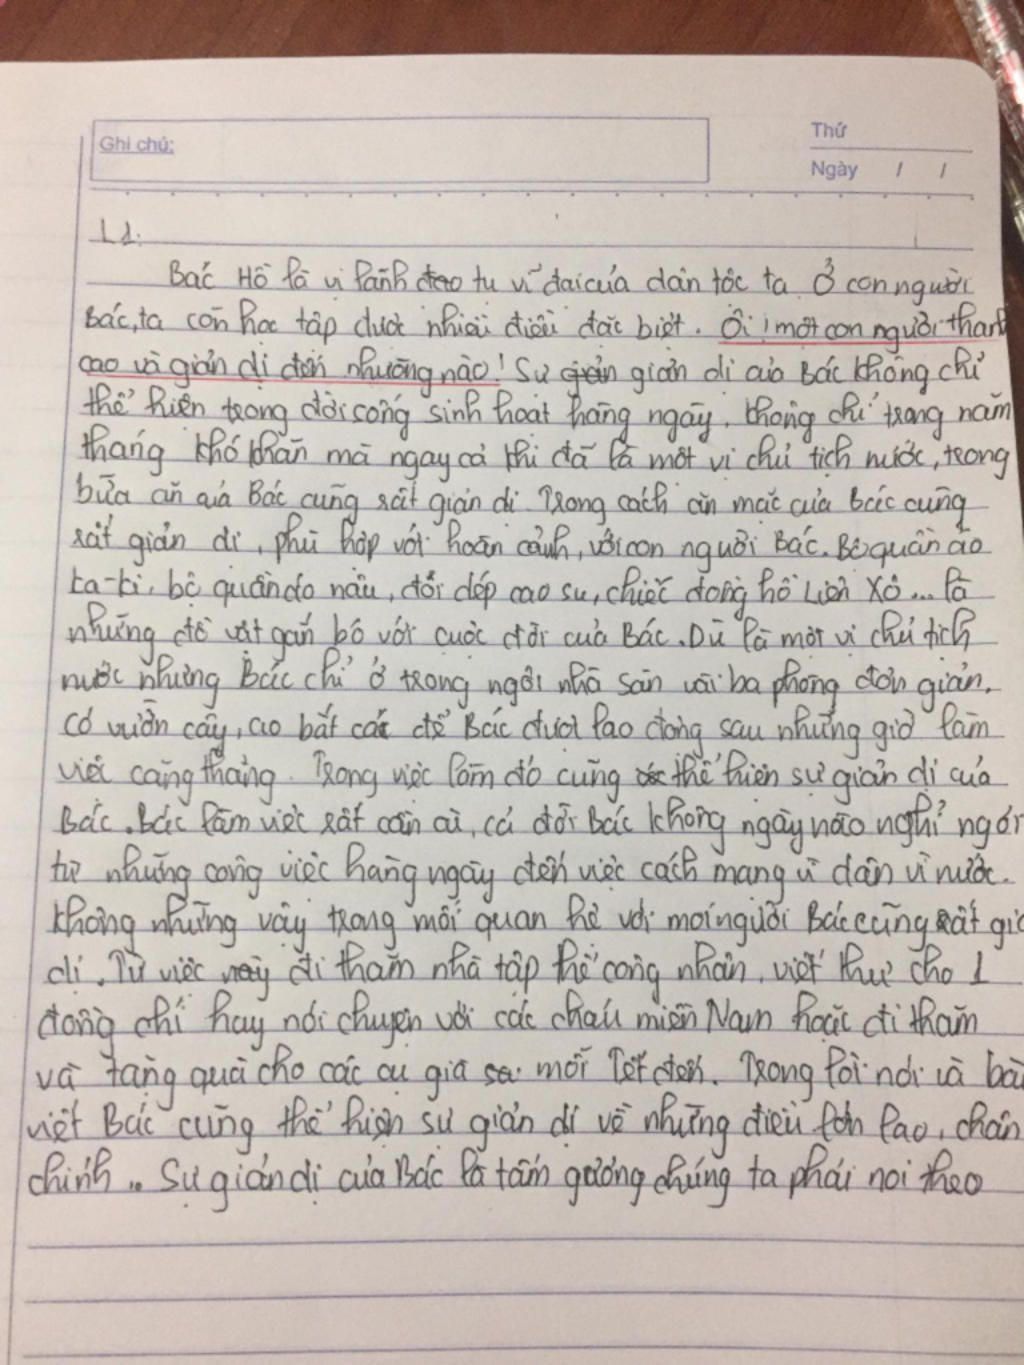 Ghi chú:
Thứ
Ngày / /
L1:
Bác Hồ là vị lãnh đạo tụ vĩ đại của dân tộc ta. Ở con người
Bác, ta còn học tập được nhiều điều đặc biệt. Ôi! một con người thanh
cao và giản dị đến nhường nào! Sự giản giản dị của Bác không chỉ
thể hiện trong đời sống sinh hoạt hàng ngày. Không chỉ trong năm
tháng khó khăn mà ngay cả khi đã là một vị chủ tịch nước, trong
bữa ăn của Bác cũng rất giản dị. Trong cách ăn mặc của Bác cũng
rất giản dị, phù hợp với hoàn cảnh, với con người Bác. Bộ quần áo
ka-ki, bộ quần áo nâu, đôi dép cao su, chiếc đồng hồ Liên Xô... là
những đồ vật gắn bó với cuộc đời của Bác. Dù là một vị chủ tịch
nước nhưng Bác chỉ ở trong ngôi nhà sàn vài ba phòng đơn giản.
Có vườn cây, ao bắt cá để Bác được lao động sau những giờ làm
việc căng thẳng. Trong việc làm đó cũng thể hiện sự giản dị của
Bác. Bác làm việc rất cần cù, cả đời Bác không ngày nào nghỉ ngơi
từ những công việc hàng ngày đến việc cách mạng vì dân vì nước.
Không những vậy trong mối quan hệ với mọi người Bác cũng rất giả
dị. Từ việc này đi thăm nhà tập thể công nhân, viết thư cho 1
đồng chí hay nói chuyện với các cháu miền Nam hoặc đi thăm
và tặng quà cho các cụ già mỗi Tết đến. Trong lời nói và bài
viết Bác cũng thể hiện sự giản dị về những điều lớn lao, chân
chính.. Sự giản dị của Bác là tấm gương chúng ta phải noi theo